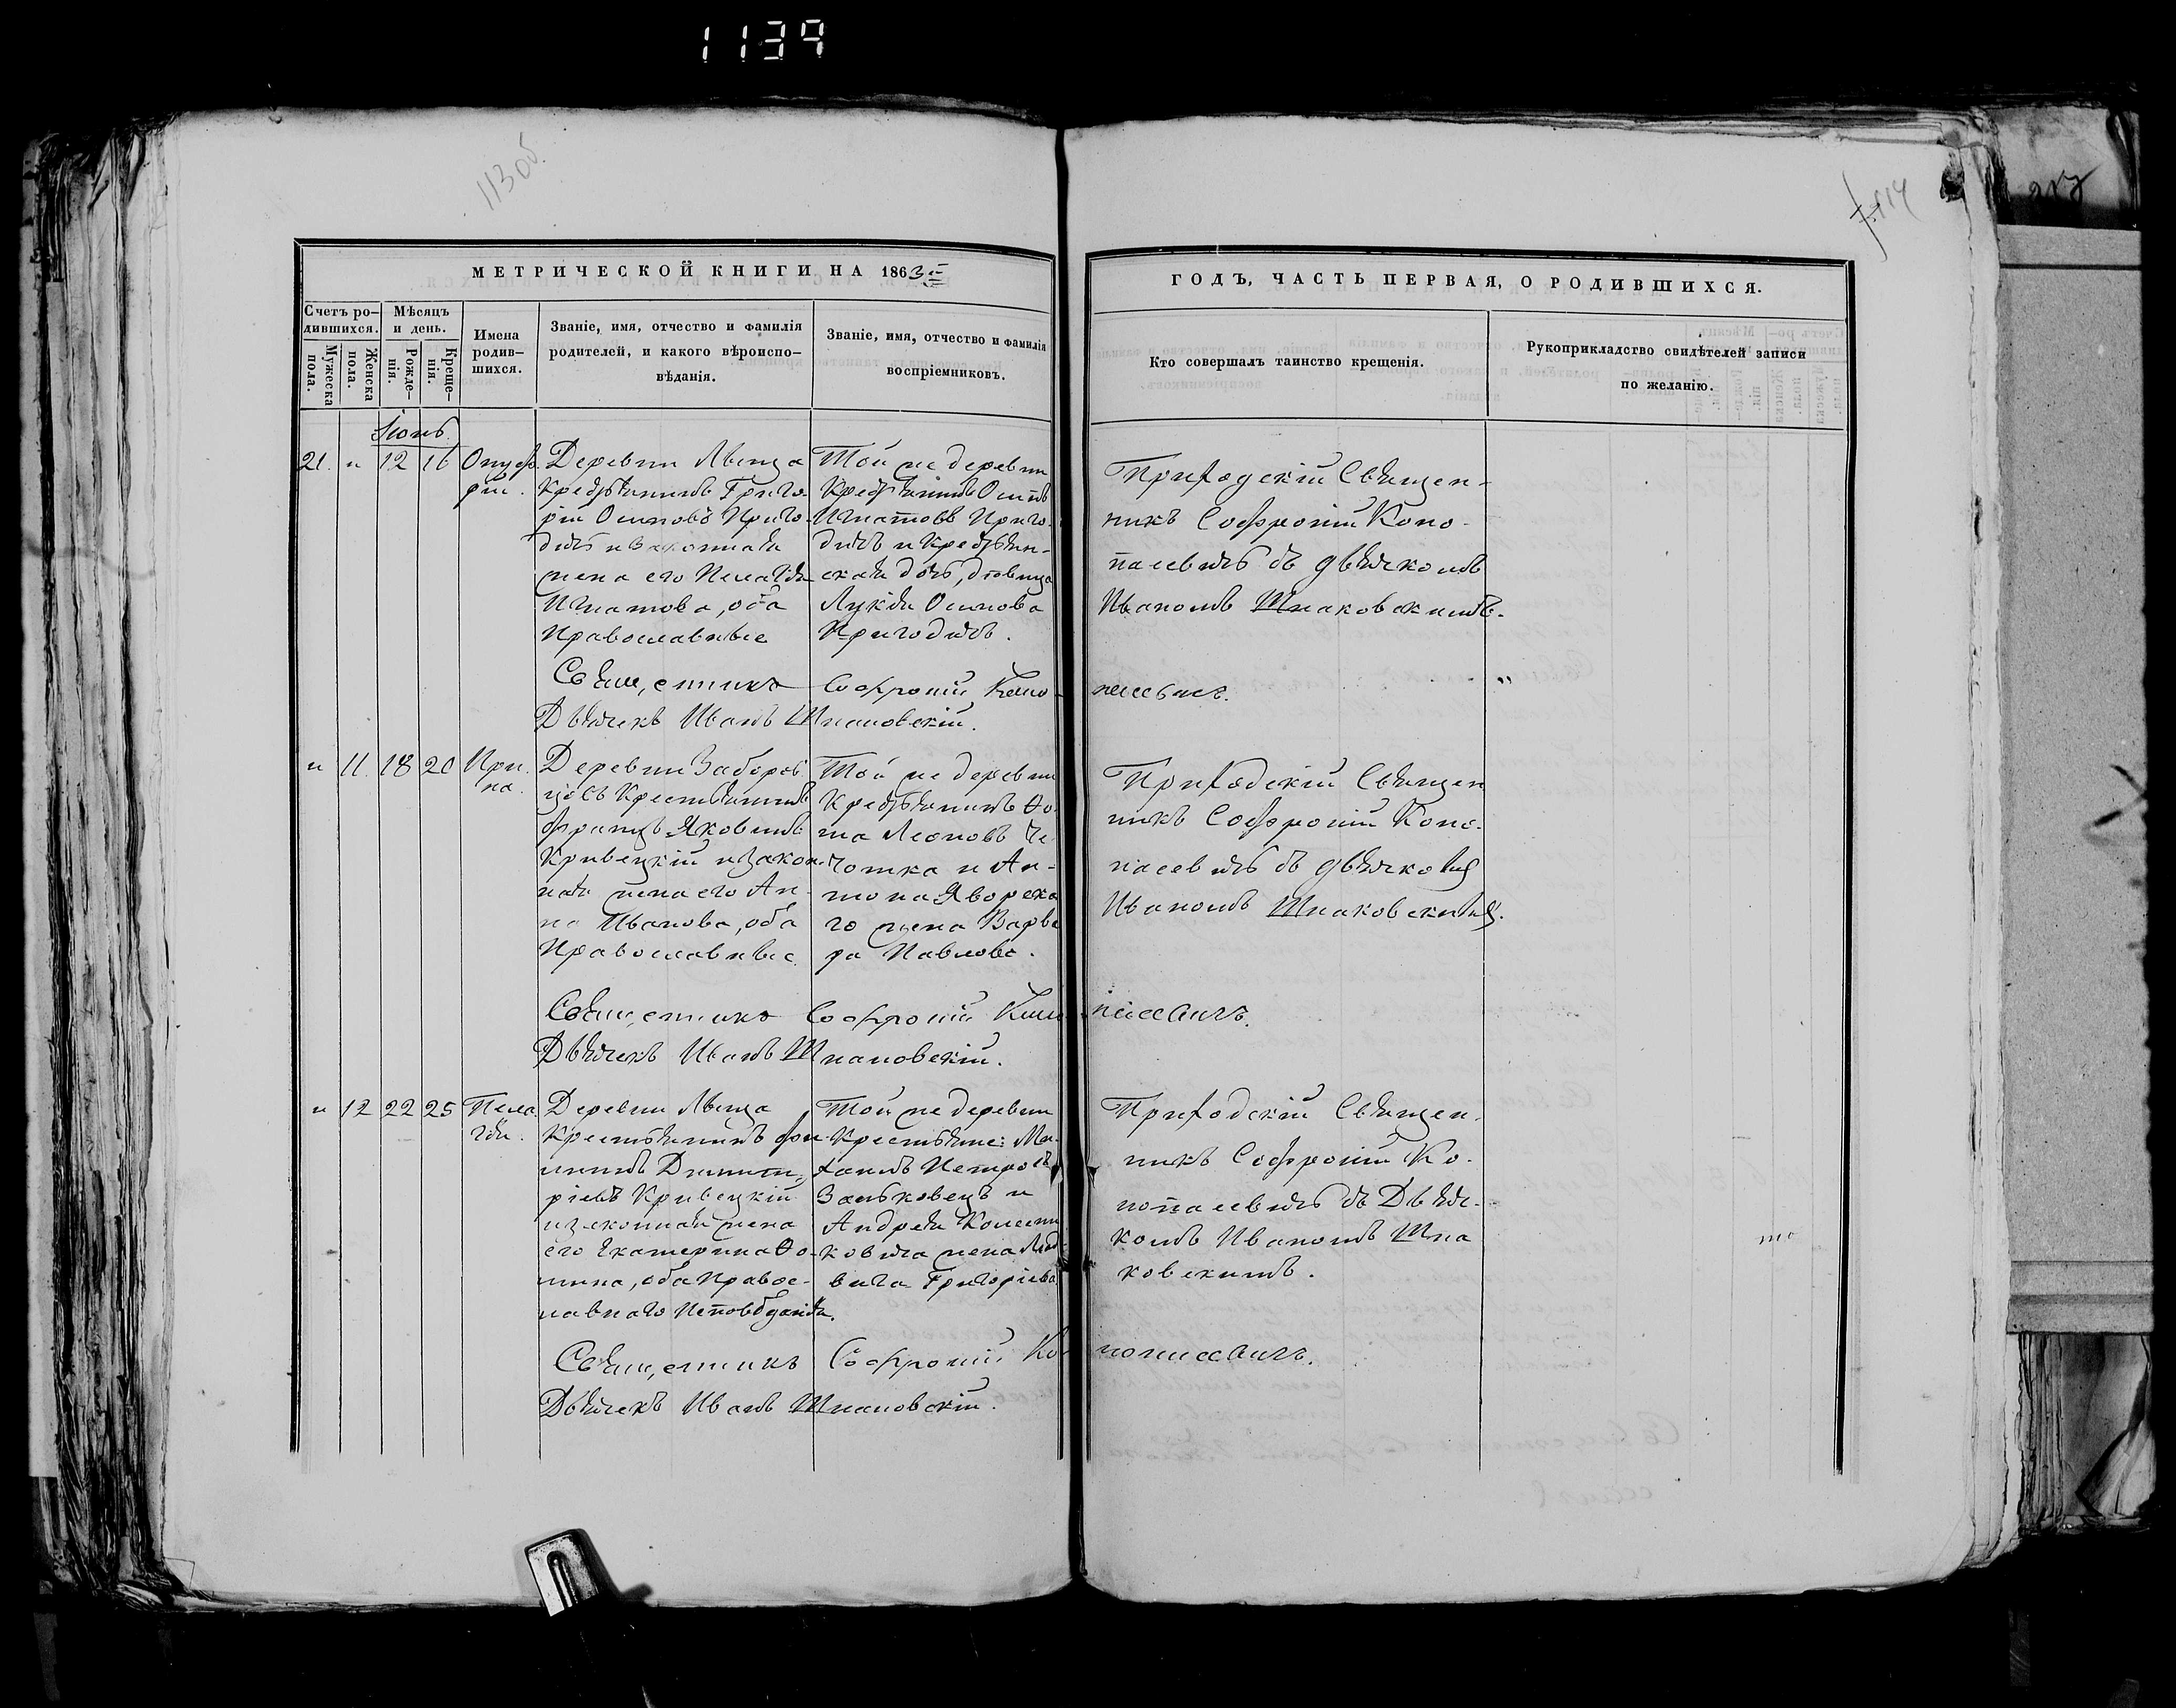 1139
113об.
114
МЕТРИЧЕСКОЙ КНИГИ НА 1863
Счетъ ро-
дившихся.
Мужеска
пола.
Женска
пола.
Мѣсяцъ
и день.
Рожде-
нія.
Креще-
нія.
Имена
родив-
шихся.
Званіе, имя, отчество и фамилія
родителей, и какого вѣроиспо-
вѣданія.
Званіе, имя, отчество и фамилія
воспріемниковъ.
ГОДЪ, ЧАСТЬ ПЕРВАЯ, О РОДИВШИХСЯ.
Кто совершалъ таинство крещенія.
Рукоприкладство свидѣтелей записи
по желанію.
Іюнь.
21. " 12 16
Онуф-
рій.
Деревни
Крестьянинъ Григо-
рій Осиповъ Приго-
дичь и Законная
жена его Пелагія
Игнатова, оба
Православные
Той же деревни
Крестьянинъ Осипъ
Игнатовъ Приго-
дичъ и Крестьян-
ская дочь, дѣвица
Лукія Осипова
Пригодичъ.
Приходскій Священ-
никъ Софроній Коно-
пасевичъ съ дьячкомъ
Иваномъ Шпаковскимъ.
Священникъ Софроній Коно-
пасевичъ.
Дьячекъ Иванъ Шпаковскій.
" 11. 18 20
Ири-
на.
Деревни Заборов-
цовъ Крестьянинъ
Францъ Яковлевъ
Кривецкій и Закон-
ная жена его Ан-
на Иванова, оба
Православные.
Той же деревни
Крестьянинъ Ѳо-
ма Леоновъ Че-
чотка и Ан-
тона Яворска-
го жена Варва
ра Павлова.
Приходскій Священ
никъ Софроній Коно-
пасевичъ съ дьячкомъ
Иваномъ Шпаковскимъ.
Священникъ Софроній Коно-
пасевичъ.
Дьячекъ Иванъ Шпаковскій.
" 12 22 25
Пела-
гія.
Деревни
Крестьянинъ Фи-
липпъ Димит-
ріевъ Кривецкій
и законная жена
его Екатерина Ѳо-
мина, оба Правос-
лавнаго Исповѣданія.
Той же деревни
Крестьяне: Ми-
хаилъ Петровъ
Заньковецъ и
Андрея Колесни
ковича жена Люд-
вига Григорьева
Приходскій Священ-
никъ Софроній Ко-
нопасевичъ съ Дьяч-
комъ Иваномъ Шпа
ковскимъ.
Священникъ Софроній Ко-
нопасевичъ.
Дьячекъ Иванъ Шпаковскій.